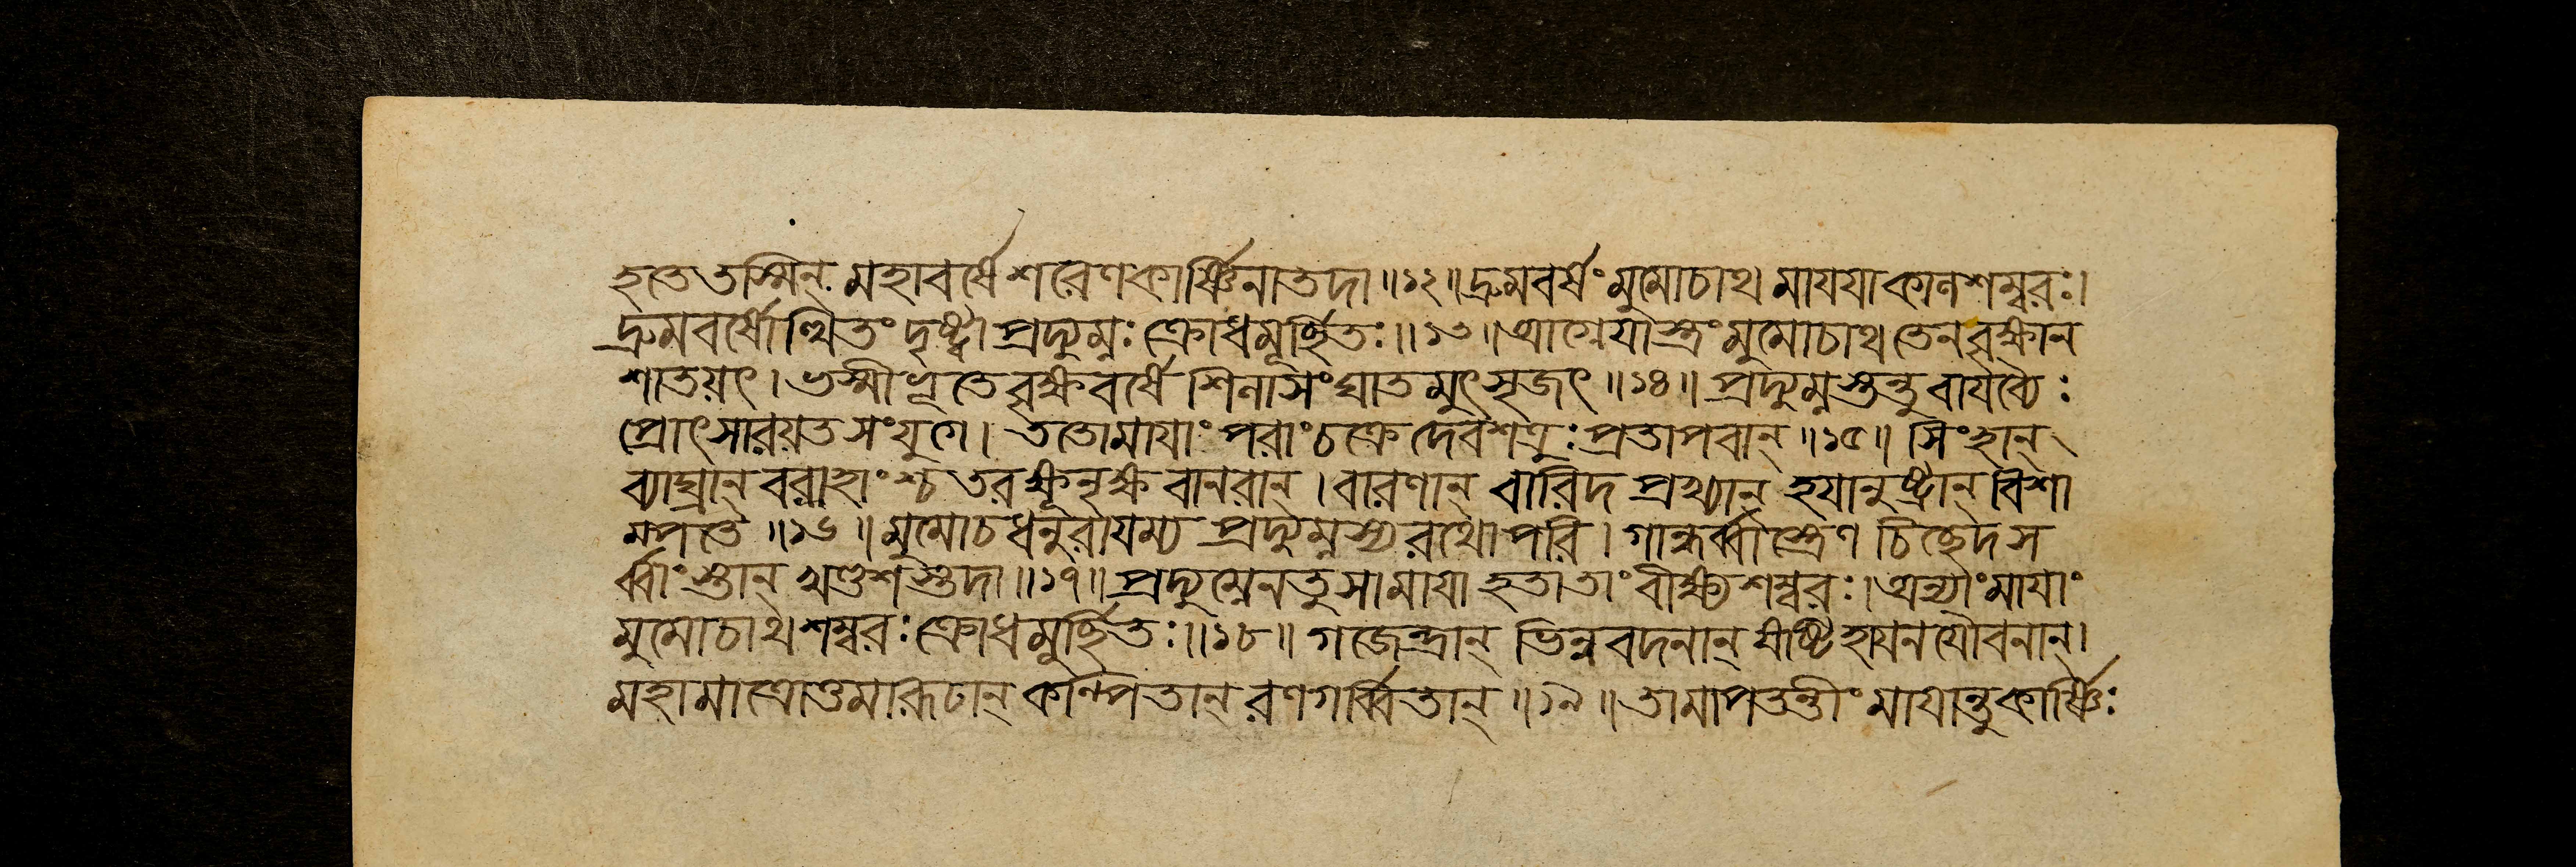 হতে তস্মিন্ মহাবর্ষে শরেণ কার্ষ্ণিনা তদা ॥১২॥ দ্রুমবর্ষং মুমোচাথ মায়য়া কাল শম্বরঃ।
দ্রুমবর্ষোত্থিতং দৃষ্ট্বা প্রদ্যুম্নঃ ক্রোধমূর্চ্ছিতঃ ॥১৩॥ আগ্নেয়াস্ত্রং মুমোচাথ তেন বৃক্ষান
শাতয়ৎ। ভস্মীভূতে বৃক্ষবর্ষে শিলাসংঘাতমুৎসৃজৎ ॥১৪॥ প্রদ্যুম্নস্তন্তু বায়ব্যৈঃ
প্রোৎসারয়ত সংযুগে। ততো মায়াং পরাং চক্রে দেবশত্রুঃ প্রতাপবান্ ॥১৫॥ সিংহান্
ব্যাঘ্রান্ বরাহাংশ্চ তরক্ষূনৃক্ষ বানরান্। বারণান্ বারিদ প্রখ্যান্ হয়ানুষ্ট্রান্ বিশা
ম্পতে ॥১৬॥ মুমোচ ধনুরায়ম্য প্রদ্যুম্নস্য রথোপরি। গান্ধর্ব্বাস্ত্রেণ চিচ্ছেদ স
র্ব্বাংস্তান্ খণ্ডশস্তদা ॥১৭॥ প্রদ্যুম্নেন তু সা মায়া হতা তাং বীক্ষ্য শম্বরঃ। অন্যাং মায়াং
মুমোচাথ শম্বরঃ ক্রোধমূর্চ্ছিতঃ ॥১৮॥ গজেন্দ্রান্ ভিন্নবদনান্ ষষ্টিহায়ন যৌবনান্।
মহামাত্রোত্তমারূঢান্ কল্পিতান্ রণগর্ব্বিতান্ ॥১৯॥ তামাপতন্তীং মায়ান্তু কার্ষ্ণিঃ